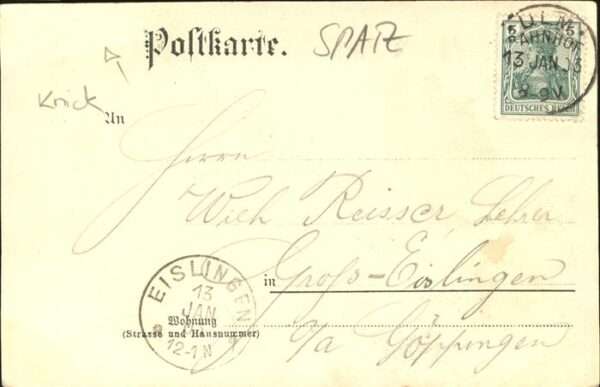 Postkarte.
SPATZ
Knick
5 5
DEUTSCHES REICH
ULM
BAHNHOF
13 JAN 3
8-9V.
An
Herrn
Wilh Reisser, Lehrer
in Groß-Eislingen
o/a Göppingen
Wohnung
(Strasse und Hausnummer)
EISLINGEN
13
JAN
12-1N